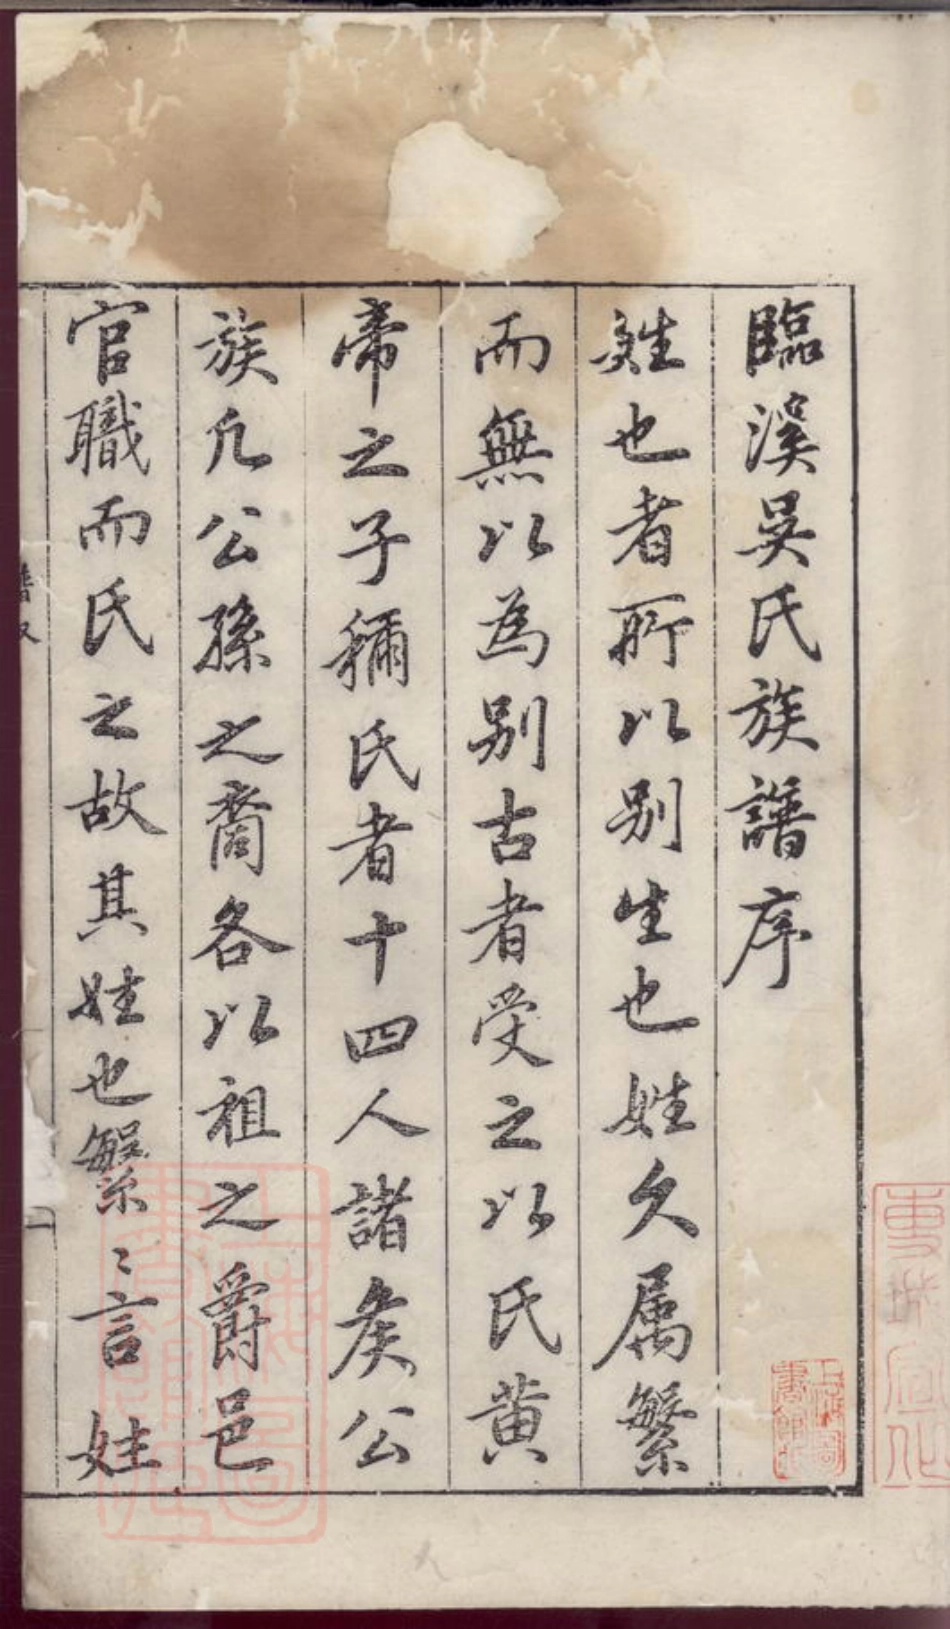 臨溪吳氏族譜序
姓也者所以別生也姓久属繁
而無以為別古者受之以氏黄
帝之子稱氏者十四人諸侯公
族凢公孫之裔各以祖之爵邑
官職而氏之故其姓也繁〻言姓